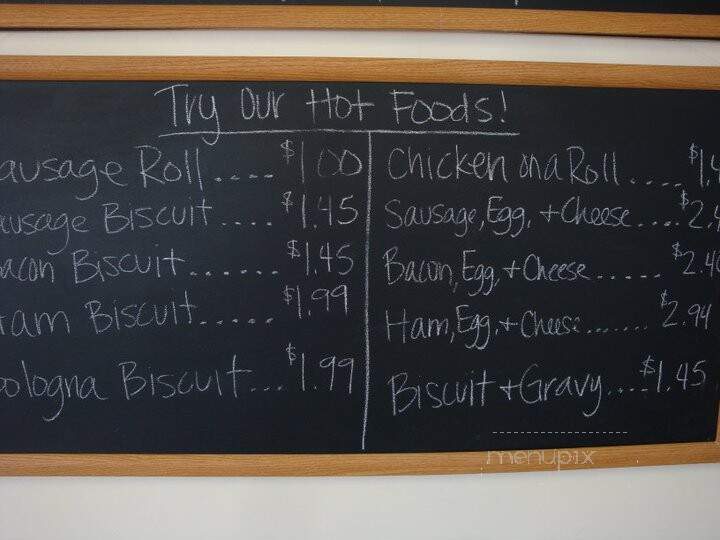 Try Our Hot Foods!
ausage Roll .... $1.00
ausage Biscuit .... $1.45
acon Biscuit ...... $1.45
am Biscuit ..... $1.99
ologna Biscuit ... $1.99
Chicken on a Roll .... $1.4
Sausage, Egg, + Cheese .... $2.4
Bacon, Egg, + Cheese ..... $2.40
Ham, Egg, + Cheese ....... $2.94
Biscuit + Gravy .... $1.45
menupix